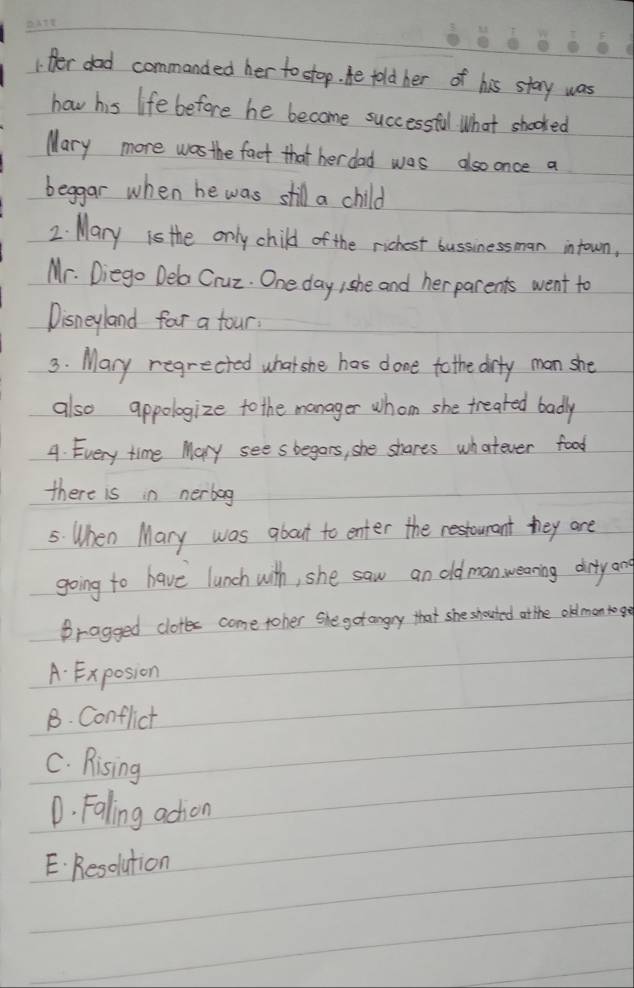 DATE
S M T W T F
1. Her dad commanded her to stop. He told her of his story was
how his life before he become successful What shocked
Mary more was the fact that her dad was also once a
beggar when he was still a child
2. Mary is the only child of the richest bussinessman in town,
Mr. Diego Dela Cruz. One day, she and her parents went to
Disneyland for a tour.
3. Mary regrected what she has done to the dirty man she
also appologize to the manager whom she treated badly
4. Every time Mary see s begars, she shares whatever food
there is in her bag
5. When Mary was about to enter the restourant they are
going to have lunch with, she saw an old man wearing dirty and
ragged clotes come to her She got angry that she shouted at the old man to go
A. Exposion
B. Conflict
C. Rising
D. Faling action
E. Resolution